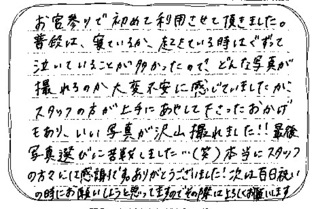 お宮参りで初めて利用させて頂きました。
普段は、寝ているか、起きている時はぐずって
泣いていることが多かったので、どんな写真が
撮れるのか大変不安に感じていましたが、
スタッフの方が上手にあやして下さったおかげ
もあり、いい写真が沢山撮れました!!最後
写真選びに苦戦しました…(笑)本当にスタッフ
の方々には感謝です。ありがとうございました!次は百日祝い
の時にお願いしようと思ってますのでその際はよろしくお願いします